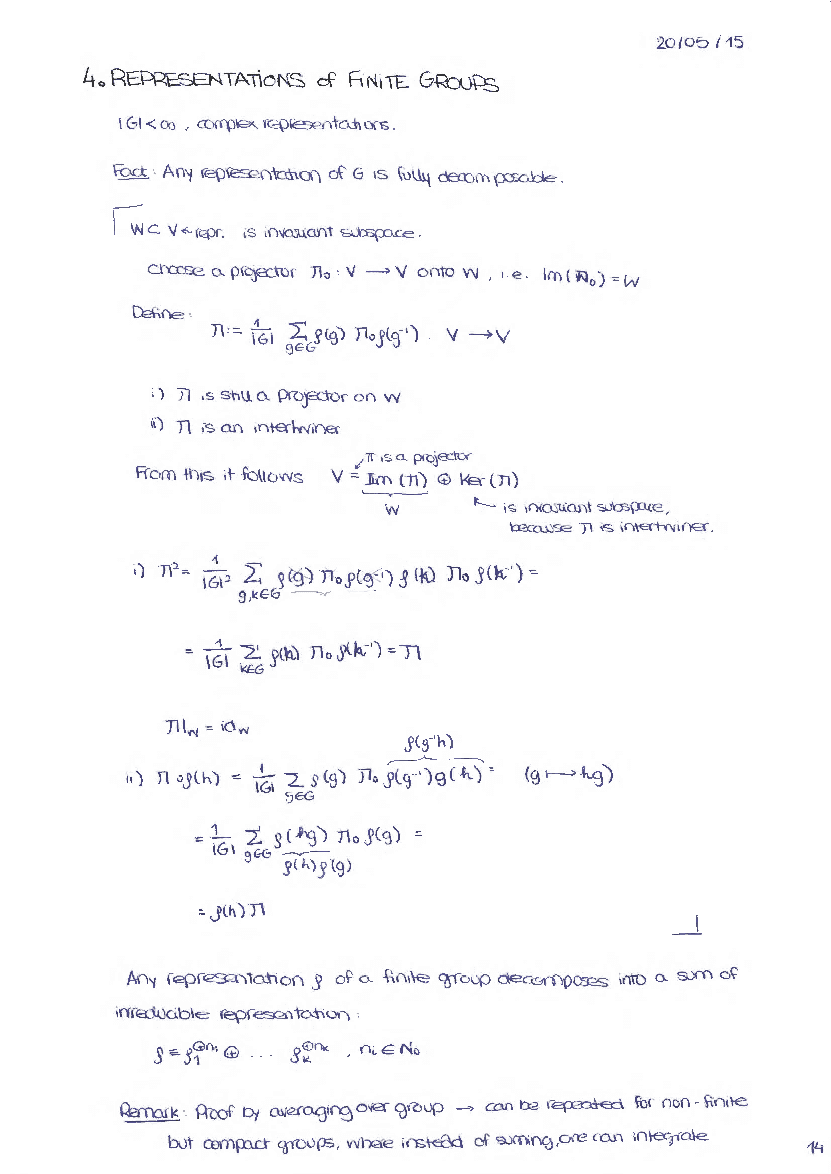 20/05/15
4. REPRESENTATIONS of FINITE GROUPS
|G|<∞, complex representations.
Fact: Any representation of G is fully decomposable.
W ⊂ V ← repr. is invariant subspace.
choose a projector Π₀: V → V onto W, i.e. Im(Π₀) = W
Define:
Π := 1/|G| Σ_{g∈G} ρ(g) Π₀ ρ(g⁻¹). V → V
i) Π is still a projector on W
ii) Π is an intertwiner
π is a projector
From this it follows V = Im(Π) ⊕ Ker(Π)
W
is invariant subspace,
because Π is intertwiner.
i) Π² = 1/|G|² Σ_{g,k∈G} ρ(g) Π₀ ρ(g⁻¹) ρ(k) Π₀ ρ(k⁻¹) =
= 1/|G| Σ_{k∈G} ρ(k) Π₀ ρ(k⁻¹) = Π
Π|_W = id_W
ρ(g⁻¹h)
ii) Π∘ρ(h) = 1/|G| Σ_{g∈G} ρ(g) Π₀ ρ(g⁻¹)ρ(h) = (g ↦ hg)
= 1/|G| Σ_{g∈G} ρ(hg) Π₀ ρ(g) =
ρ(h)ρ(g)
= ρ(h)Π
Any representation ρ of a finite group decomposes into a sum of
irreducible representation:
ρ ≅ ρ₁^{⊕n₁} ⊕ ... ρ_k^{⊕n_k}, nᵢ ∈ ℕ₀
Remark: Proof by averaging over group → can be repeated for non-finite
but compact groups, where instead of suming, one can integrate
14